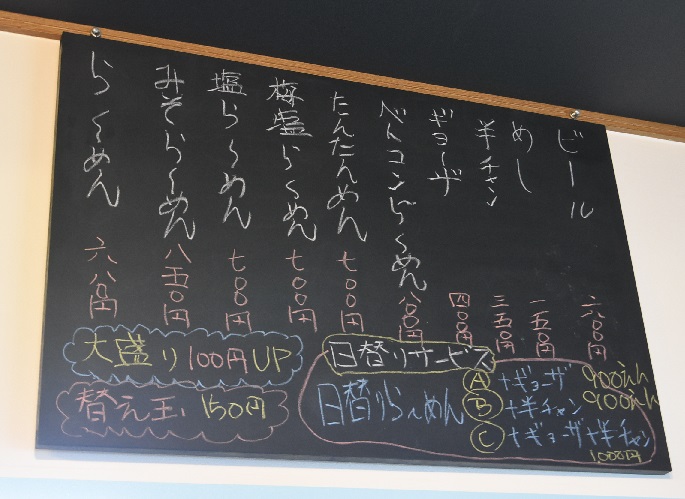 ビール 六〇〇円
めし 一五〇円
半チャン 三五〇円
ギョーザ 四〇〇円
ベトコンらーめん 八〇〇円
たんたんめん 七〇〇円
梅塩らーめん 七〇〇円
塩らーめん 七〇〇円
みそらーめん 八五〇円
らーめん 六八〇円
大盛り100円UP
替え玉 150円
日替りサービス
日替りらーめん
A +ギョーザ 900えん
B +半チャン 900えん
C +ギョーザ+半チャン
1000円